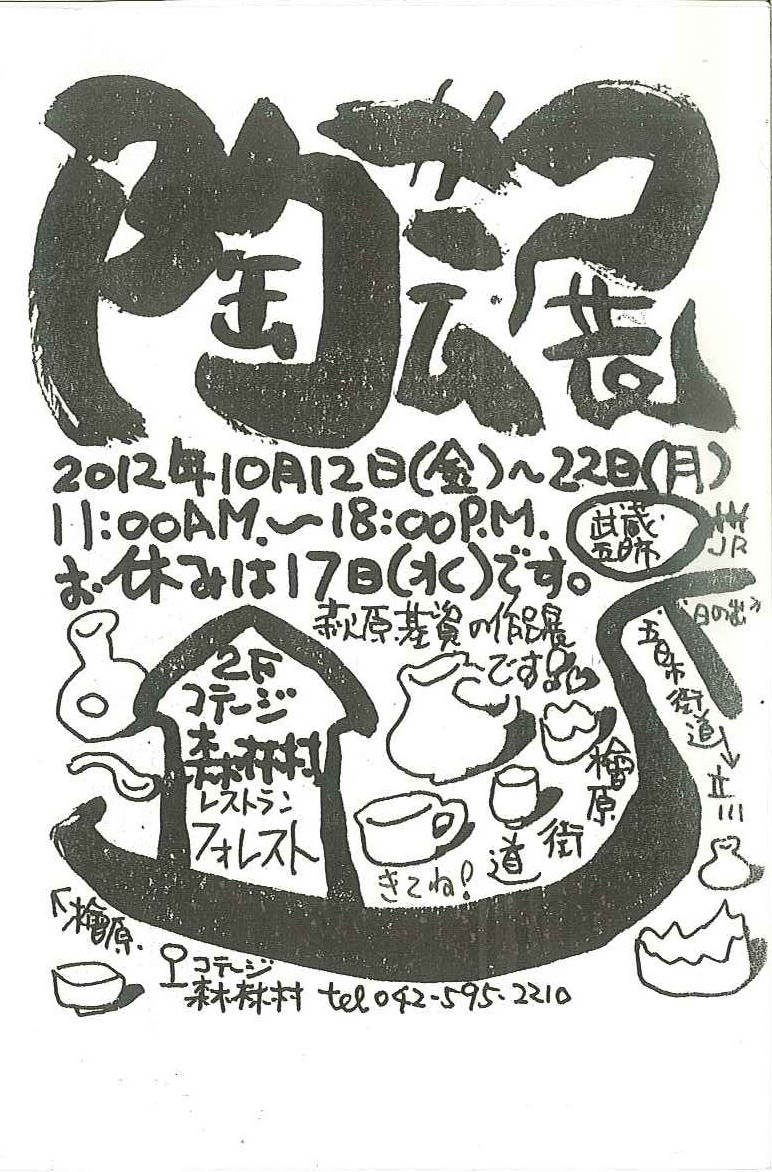 陶芸展
2012年10月12日(金)〜22日(月)
11:00A.M.〜18:00P.M.
お休みは17日(水)です。
武蔵
五日市
JR
萩原基資の作品展
〜です!
2F
コテージ
森林村
レストラン
フォレスト
日の出
五日市街道→立川
檜原街道
きてね!
←檜原
コテージ
森林村 tel 042-595-2210